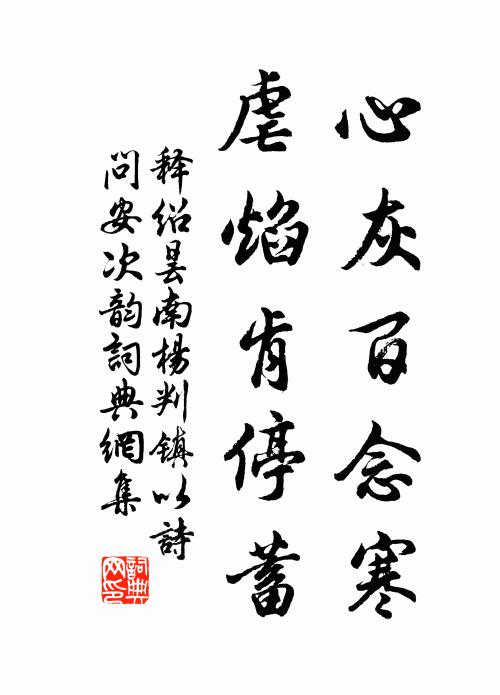 心灰百念寒
虐焰肯停蓄
释绍昙南杨判镇以詩
问安次韵詞典網集
詞典网印